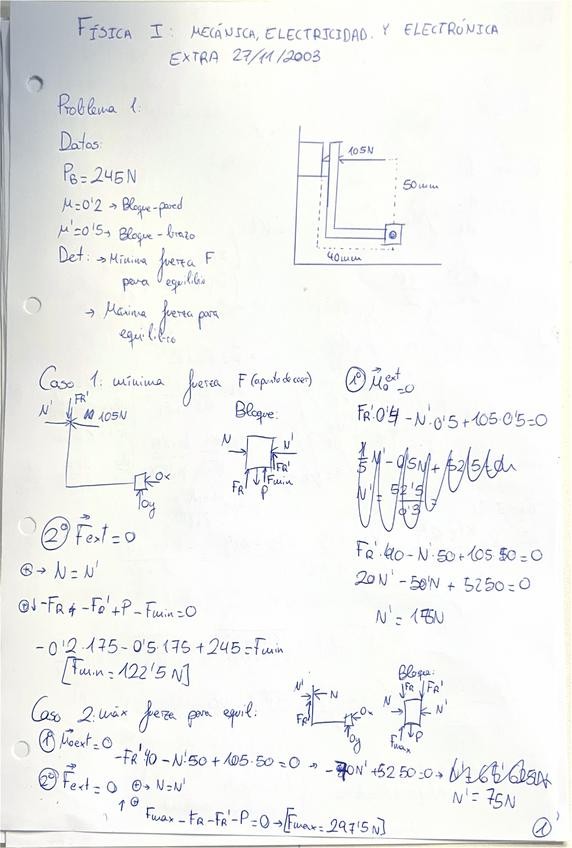 FÍSICA I: MECÁNICA, ELECTRICIDAD. Y ELECTRÓNICA
EXTRA 27/11/2003
Problema 1:
Datos:
P_B = 245N
μ=0'2 → Bloque-pared
μ'=0'5 → Bloque-brazo
Det: → Mínima fuerza F
para equilibrio
→ Máxima fuerza para
equilibrio
105N
50mm
40mm
Caso 1: mínima fuerza F (a punto de caer)
N' FR' 105N
Ox
Oy
Bloque:
N N'
FR'
FR P Fmin
1º M_o^ext = 0
FR'·0'4 - N'·0'5 + 105·0'5 = 0
FR'·40 - N'·50 + 105·50 = 0
20N' - 50N' + 5250 = 0
N' = 175N
2º Fext = 0
⊕→ N = N'
⊕↓ -FR - FR' + P - Fmin = 0
-0'2·175 - 0'5·175 + 245 = Fmin
[Fmin = 122'5 N]
Caso 2: máx fuerza para equil:
N' N
FR'
Ox
Oy
Bloque:
FR FR'
N N'
Fmax P
1º Moext = 0
-FR'·40 - N'·50 + 105·50 = 0 → -70N' + 5250 = 0 →
N' = 75N
2º Fext = 0 ⊕→ N = N'
↑⊕ Fmax - FR - FR' - P = 0 → [Fmax = 297'5N]
1